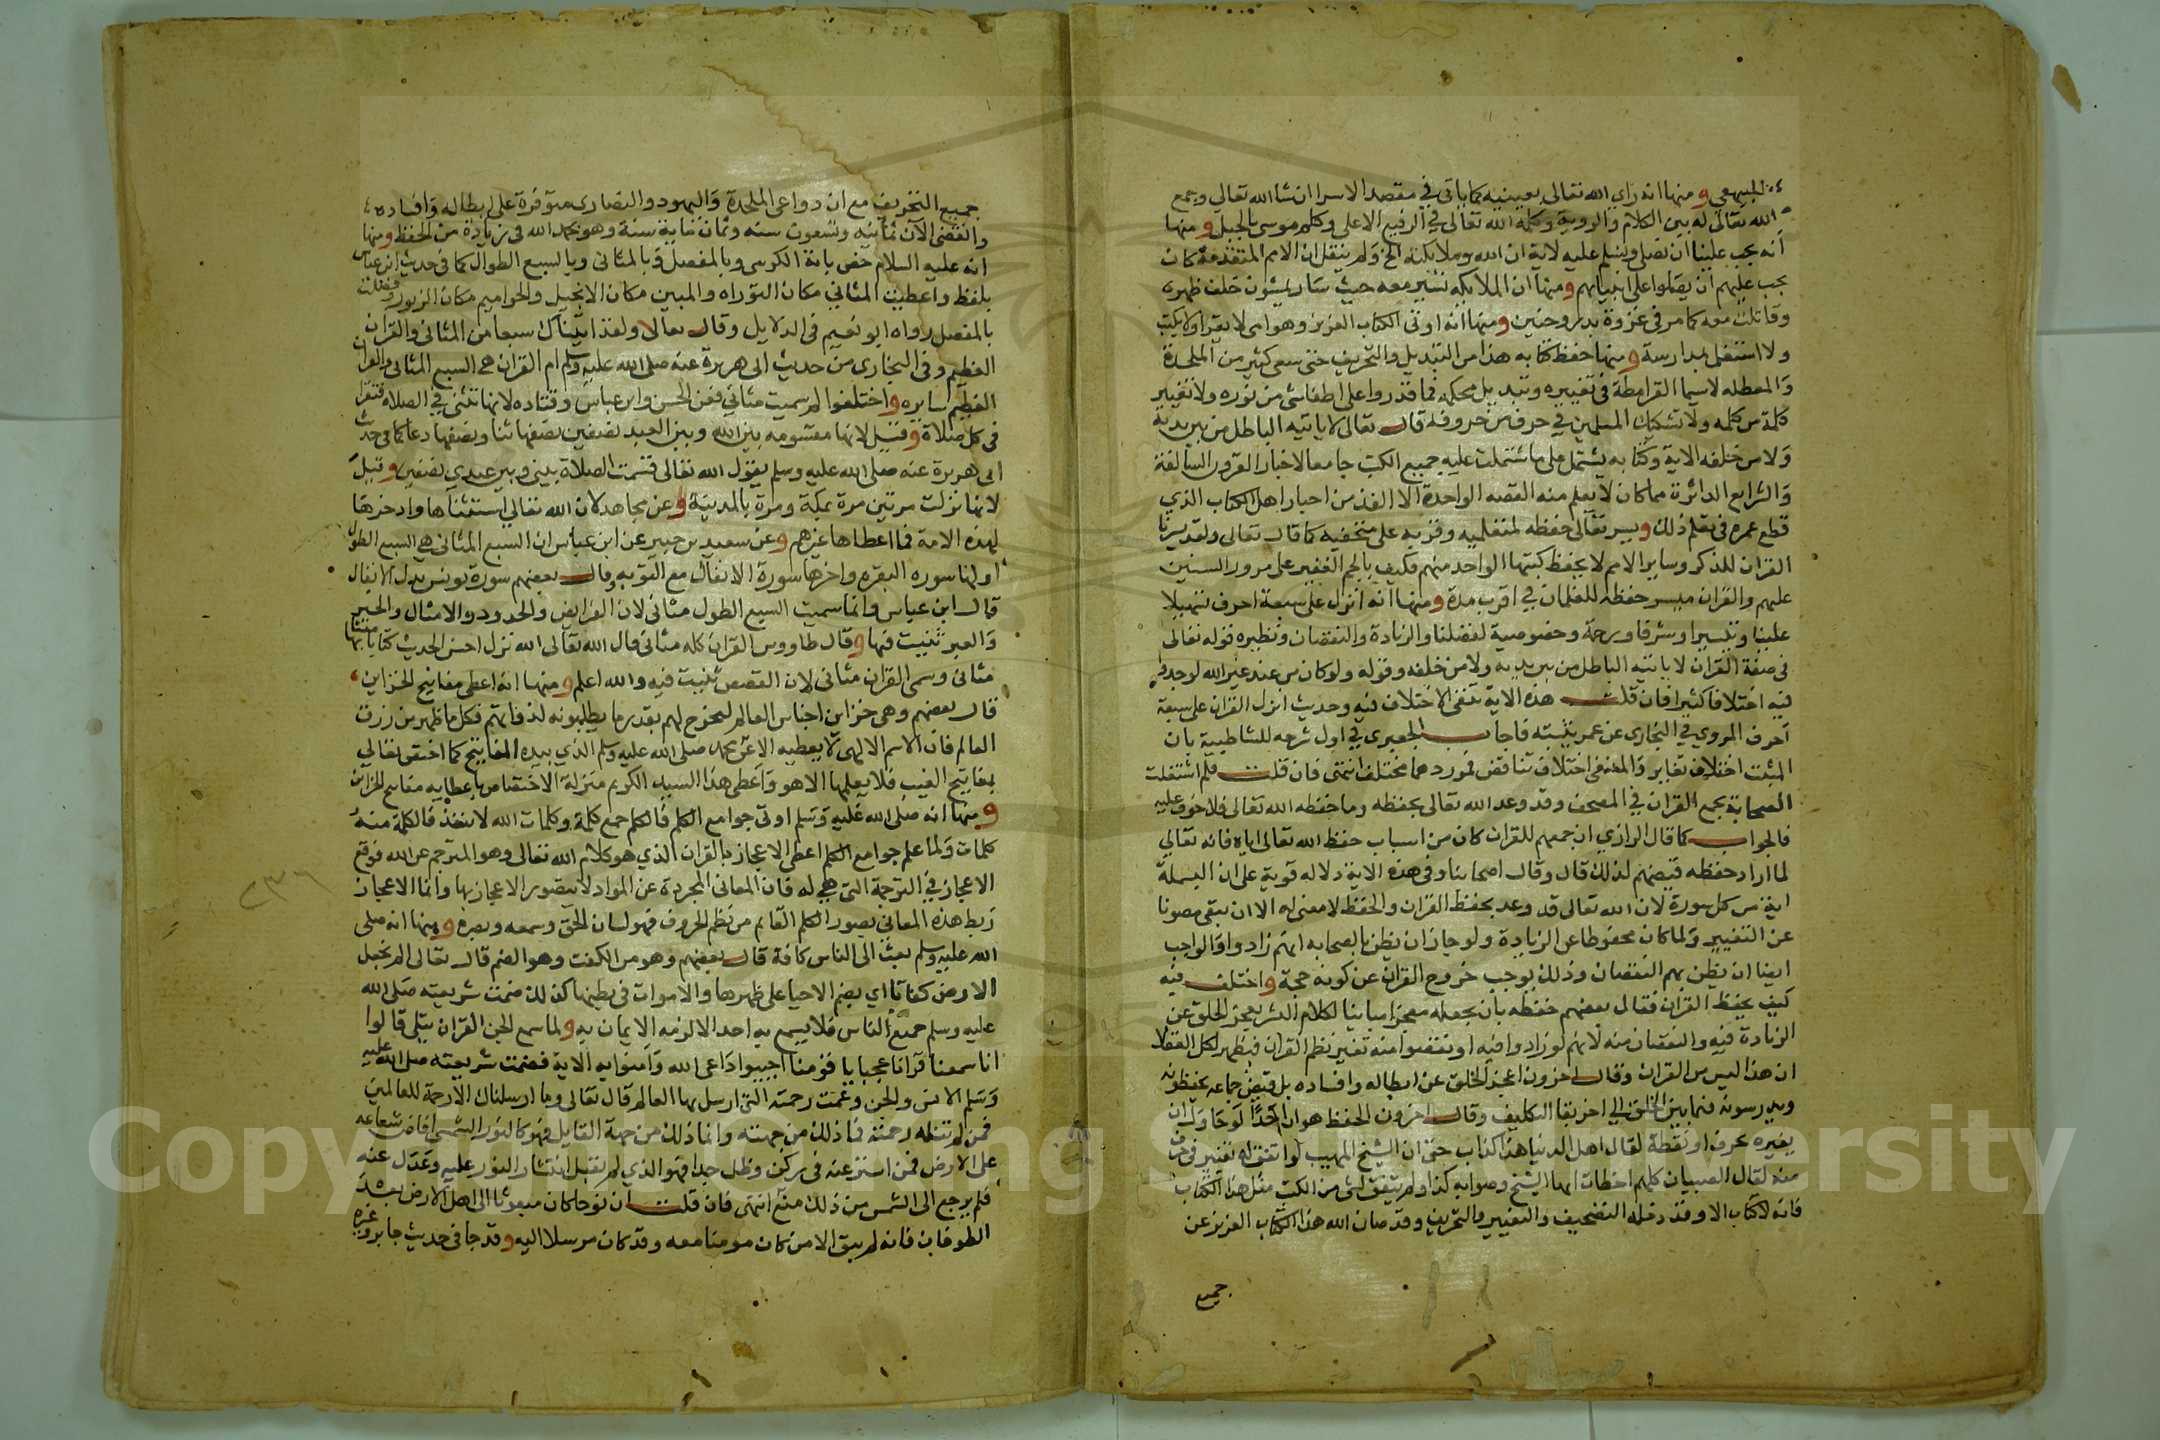 البيهقي ومنها انه راي الله تعالى بعينيه كما ياتي في مقصد الاسرا ان شا الله تعالى وجمع
الله تعالى له بين الكلام والروية وكلمه الله تعالى في الرفيع الاعلى وكلم موسى بالجبل ومنها
انه يجب علينا ان نصلي ونسلم عليه لاية ان الله وملايكته الخ ولم ينقل ان الامم المتقدمة كان
يجب عليهم ان يصلوا على انبيايهم ومنها ان الملايكه تسير معه حيث سار يمشون خلف ظهره
وقاتلت معه كما مر في غزوة بدر وحنين ومنها انه اوتى الكتاب العزيز وهو امي لا يقرا ولا يكتب
ولا اشتغل بمدارسة ومنها حفظ كتابه هذا من التبديل والتحريف حتى سعى كثير من الملحدة
والمعطله لاسيما القرامطة في تغييره وتبديل محكمه فما قدروا على اطفا شى من نوره ولا تغيير
كلمة من كلمه ولا تشكيك المسلمين في حرف من حروفه قال تعالى لا ياتيه الباطل من بين يديه
ولا من خلفه الاية وكتابه يشتمل على ما اشتملت عليه جميع الكتب جامعا لاخبار القرون السالفة
والشرايع الداثرة مما كان لا يعلم منه القصه الواحدة الا الفذ من احبار اهل الكتاب الذي
قطع عمره في تعلم ذلك ويسر تعالى حفظه لمتعلميه وقربه على متحفظيه كما قال تعالى ولقد يسرنا
القران للذكر وساير الامم لا يحفظ كتبها الواحد منهم فكيف بالجم الغفير على مرور السنين
عليهم والقران ميسر حفظه للغلمان في اقرب مدة ومنها انه انزل على سبعة احرف تسهيلا
علينا وتيسيرا وشرفا ورحمة وخصوصية لفضلنا والزيادة والنقصان ونظيره قوله تعالى
في صفة القران لا ياتيه الباطل من بين يديه ولا من خلفه وقوله ولو كان من عند غير الله لوجدوا
فيه اختلافا كثيرا فان قلت هذه الاية تنفى الاختلاف فيه وحديث انزل القران على سبعة
احرف المروي في البخارى عن عمر يثبته فاجاب الجعبرى في اول شرحه للشاطبية بان
المثبت اختلاف تغاير والمنفى اختلاف تناقض فموردهما مختلف انتهى فان قلت فلم اشتغلت
الصحابة بجمع القران في المصحف وقد وعد الله تعالى بحفظه وما حفظه الله تعالى فلا خوف عليه
فالجواب كما قال الرازي ان جمعهم للقران كان من اسباب حفظ الله تعالى اياه فانه تعالي
لما اراد حفظه قيضهم لذلك قال وقال اصحابنا وفي هذه الاية دلاله قوية على ان البسملة
اية من كل سورة لان الله تعالى قد وعد بحفظ القران والحفظ لا معنى له الا ان يبقى مصونا
عن التغيير ولما كان محفوظا عن الزيادة ولو جاز ان يظن بالصحابه انهم زادوا فالواجب
ايضا ان يظن بهم النقصان وذلك يوجب خروج القران عن كونه حجة واختلف فيه
كيف يحفظ القران فقال بعضهم حفظه بان جعله معجزا مباينا لكلام البشر يعجز الخلق عن
الزيادة فيه والنقصان منه لانهم لو زادوا فيه او نقصوا منه تغير نظم القران فيظهر لكل العقلا
ان هذا ليس من القران وقال اخرون اعجز الخلق عن ابطاله وافساده بل قيض جماعه يحفظونه
ويدرسونه فيما بين الخلق الى اخر بقا التكليف وقال اخرون الحفظ هو ان احدا لو حاول ان
يغيره بحرف او نقطة لقال اهل الدنيا هذا كذاب حتى ان الشيخ المهيب لو اتفق له تغيير في حرف
منه لقال الصبيان كلهم اخطات ايها الشيخ وصوابه كذا ولم يتفق لشى من الكتب مثل هذا الكتاب
فانه لا كتاب الا وقد دخله التصحيف والتغيير والتحريف وقد صان الله هذا الكتاب العزيز عن
جميع
جميع التحريف مع ان دواعى الملحدة واليهود والنصارى متوفرة على ابطاله وافساده
وانقضى الان ثمانيه وتسعون سنه وثمان ماية سنة وهو بحمد الله فى زيادة من الحفظ ومنها
انه عليه السلام خص باية الكرسى وبالمفصل وبالمثانى وبالسبع الطوال كما فى حديث ابن عباس
بلفظ واعطيت المثاني مكان التوراه والمبين مكان الانجيل والحواميم مكان الزبور وفضلت
بالمفصل رواه ابو نعيم فى الدلايل وقال تعالا ولقد اتيناك سبعا من المثانى والقران
العظيم وفى البخارى من حديث ابى هريرة عنه صلى الله عليه وسلم ام القران هى السبع المثانى والقران
العظيم سايره واختلفوا لم سميت مثاني فعن الحسن وابن عباس وقتاده لانها تثنى في الصلاه فتقرا
فى كل صلاة وقيل لانها مقسومه بين الله وبين العبد نصفين نصفها ثنا ونصفها دعا كما فى حديث
ابى هريرة عنه صلى الله عليه وسلم يقول الله تعالى قسمت الصلاة بينى وبين عبدي نصفين وقيل
لانها نزلت مرتين مرة بمكة ومرة بالمدينة وعن مجاهد لان الله تعالى استثناها وادخرها
لهذه الامة فما اعطاها غيرهم وعن سعيد بن جبير عن ابن عباس ان السبع المثانى هى السبع الطول
اولها سوره البقره واخرها سورة الانفال مع التوبه وقال بعضهم سورة يونس بدل الانفال
قال ابن عباس وانما سميت السبع الطول مثانى لان الفرايض والحدود والامثال والخبر
والعبر ثنيت فيها وقال طاووس القران كله مثانى قال الله تعالى الله نزل احسن الحديث كتابا متشابها
مثانى وسمى القران مثانى لان القصص ثنيت فيه والله اعلم ومنها انه اعطى مفاتيح الخزاين
قال بعضهم وهى خزاين اجناس العالم ليخرج لهم بقدر ما يطلبونه لذواتهم فكل ما ظهر من رزق
العالم فان الاسم الالهى لا يعطيه الا عن محمد صلى الله عليه وسلم الذي بيده المفاتيح كما اختص تعالي
بمفاتيح الغيب فلا يعلمها الا هو واعطى هذا السيد الكريم منزلة الاختصاص باعطايه مفاتيح الخزاين
ومنها انه صلى الله عليه وسلم اوتى جوامع الكلم فالكلم جمع كلمة وكلمات الله لا تنفذ فالكلمة منه
كلمات ولما علم جوامع الكلم اعطى الاعجاز بالقران الذي هو كلام الله تعالى وهو المترجم عن الله فوقع
الاعجاز في الترجمة التى هى له فان المعانى المجردة عن المواد لا يتصور الاعجاز بها وانما الاعجاز
ربط هذه المعانى بصور الكلم القايم من نظم الحروف فهو لسان الحق وسمعه وبصره ومنها انه صلى
الله عليه وسلم بعث الى الناس كافة قال بعضهم وهو من الكفت وهو الضم قال تعالى الم نجعل
الارض كفاتا اي يضم الاحيا على ظهرها والاموات فى بطنها كذلك ضمت شريعته صلى الله
عليه وسلم جميع الناس فلا يسمع به احد الا لزمه الايمان به ولما سمع الجن القران يتلى قالوا
انا سمعنا قرانا عجبا يا قومنا اجيبوا داعى الله وامنوا به الاية فضمت شريعته صلى الله عليه
وسلم الانس والجن وعمت رحمته التى ارسل بها العالم قال تعالى وما ارسلناك الا رحمة للعالمين
فمن لم تنله رحمته فما ذلك من جهته وانما ذلك من جهة القابل فهو كالنور الشمسى افاض شعاعه
على الارض فمن استتر عنه فى ركن وظل جدار فهو الذي لم يقبل انتشار النور عليه وعدل عنه
فلم يرجع الى الشمس من ذلك منع انتهى فان قلت ان نوحا كان مبعوثا الى اهل الارض بعد
الطوفان فانه لم يبق الا من كان مومنا معه وقد كان مرسلا اليه وقد جا فى حديث جابر وغيره
٢٣٦
Copy King S University